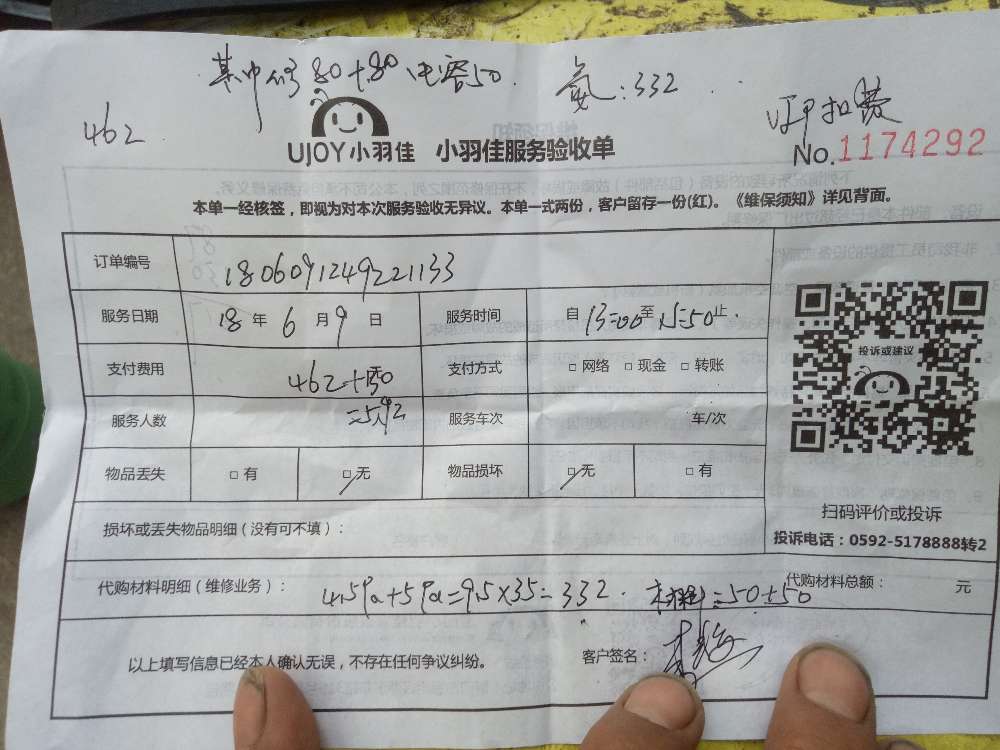 其中修80+80 电容50. 氨:332
462
订甲扣费
UJOY小羽佳 小羽佳服务验收单
No.1174292
本单一经核签，即视为对本次服务验收无异议。本单一式两份，客户留存一份(红)。《维保须知》详见背面。
订单编号 180609124922133
服务日期 18 年 6 月 9 日 服务时间 自 13:00 至 15:50 止.
支付费用 462+130 支付方式 □ 网络 □ 现金 □ 转账
=592
服务人数 人 服务车次 车/次
物品丢失 □ 有 □ 无 物品损坏 □ 无 □ 有
损坏或丢失物品明细（没有可不填）：
代购材料明细（维修业务）： 4.5Pa+5Pa=9.5×35=332. 材料=50+50 代购材料总额： 元
以上填写信息已经本人确认无误，不存在任何争议纠纷。 客户签名：
投诉或建议
扫码评价或投诉
投诉电话：0592-5178888转2